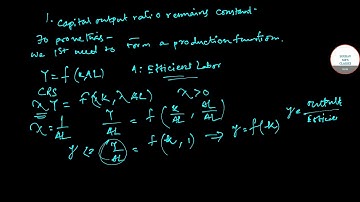 1. Capital output ratio remains constant-
To prove this-
we 1st need to form a production function.
Y = f(K, AL) A: Efficient Labor
CRS
λY = f(λK, λAL) λ>0
λ = 1/AL Y/AL = f(K/AL, AL/AL)
y = Y/AL = f(k, 1) ⇒ y = f(k) y = output/